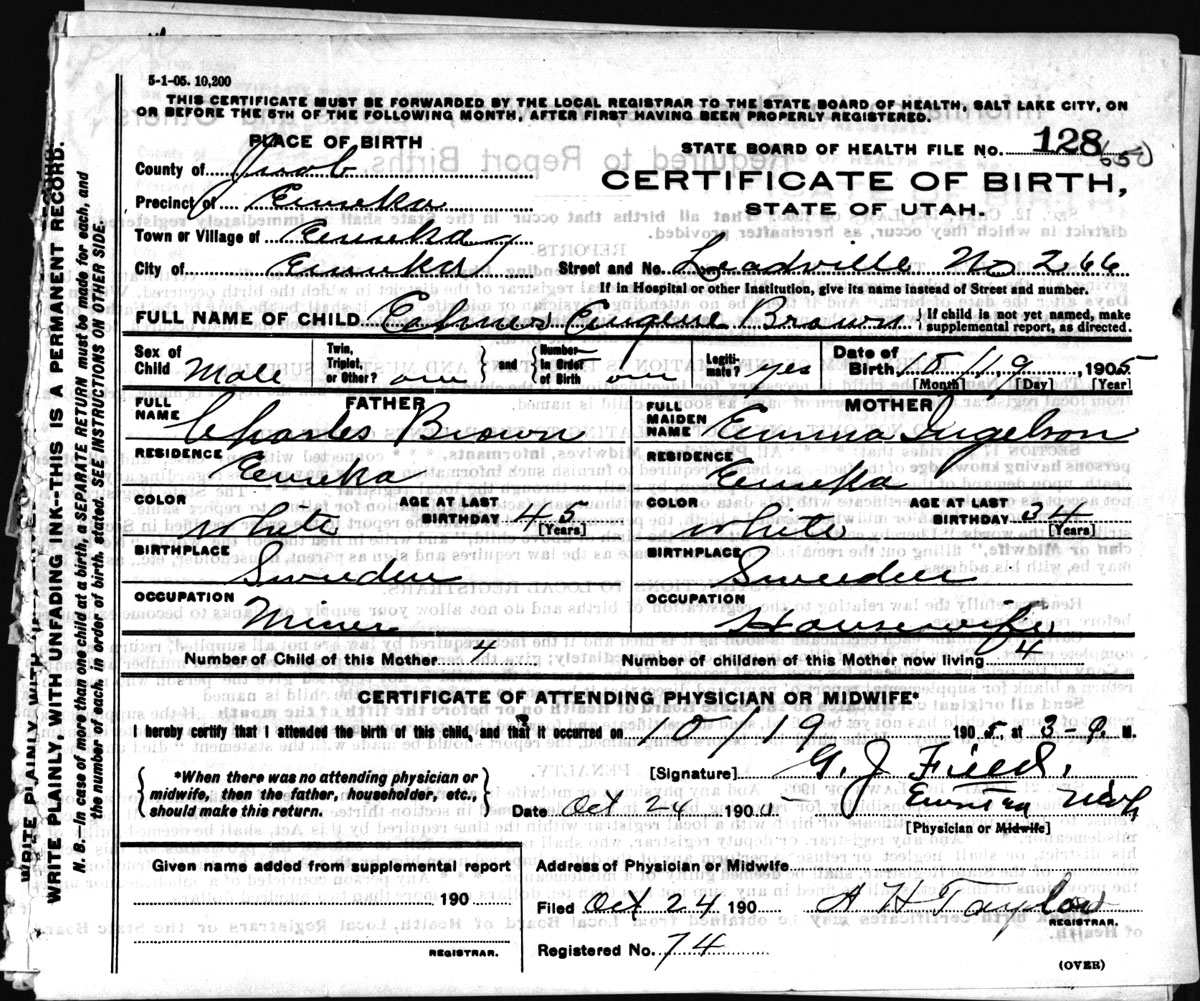 5-1-05. 10,200
THIS CERTIFICATE MUST BE FORWARDED BY THE LOCAL REGISTRAR TO THE STATE BOARD OF HEALTH, SALT LAKE CITY, ON
OR BEFORE THE 5TH OF THE FOLLOWING MONTH, AFTER FIRST HAVING BEEN PROPERLY REGISTERED.
PLACE OF BIRTH
STATE BOARD OF HEALTH FILE No. 128
County of Juab
CERTIFICATE OF BIRTH,
Precinct of Eureka
STATE OF UTAH.
Town or Village of Eureka
City of Eureka Street and No. Leadville No 266
If in Hospital or other Institution, give its name instead of Street and number.
FULL NAME OF CHILD Eugene Brown {If child is not yet named, make supplemental report, as directed.
Sex of Child Male Twin, Triplet, or Other? one } and { Number in Order of Birth one Legiti-mate? yes Date of Birth 10 / 19 1905
[Month] [Day] [Year]
FATHER MOTHER
FULL NAME Charles Brown FULL MAIDEN NAME Emma Ingelson
RESIDENCE Eureka RESIDENCE Eureka
COLOR White AGE AT LAST BIRTHDAY 45 [Years] COLOR White AGE AT LAST BIRTHDAY 34 [Years]
BIRTHPLACE Sweeden BIRTHPLACE Sweeden
OCCUPATION Miner OCCUPATION Housewife
Number of Child of this Mother 4 Number of children of this Mother now living 4
CERTIFICATE OF ATTENDING PHYSICIAN OR MIDWIFE*
I hereby certify that I attended the birth of this child, and that it occurred on 10 / 19 1905, at 3- M.
{*When there was no attending physician or midwife, then the father, householder, etc., should make this return.}
[Signature] G. J. Field.
Date Oct 24 1905
[Physician or Midwife]
Given name added from supplemental report
190
REGISTRAR.
Address of Physician or Midwife
Filed Oct 24 190 A H Taylor
REGISTRAR.
Registered No. 74
(OVER)
WRITE PLAINLY WITH
WRITE PLAINLY WITH UNFADING INK--THIS IS A PERMANENT RECORD.
N. B.--In case of more than one child at a birth, a SEPARATE RETURN must be made for each, and
the number of each, in order of birth, stated. SEE INSTRUCTIONS ON OTHER SIDE.